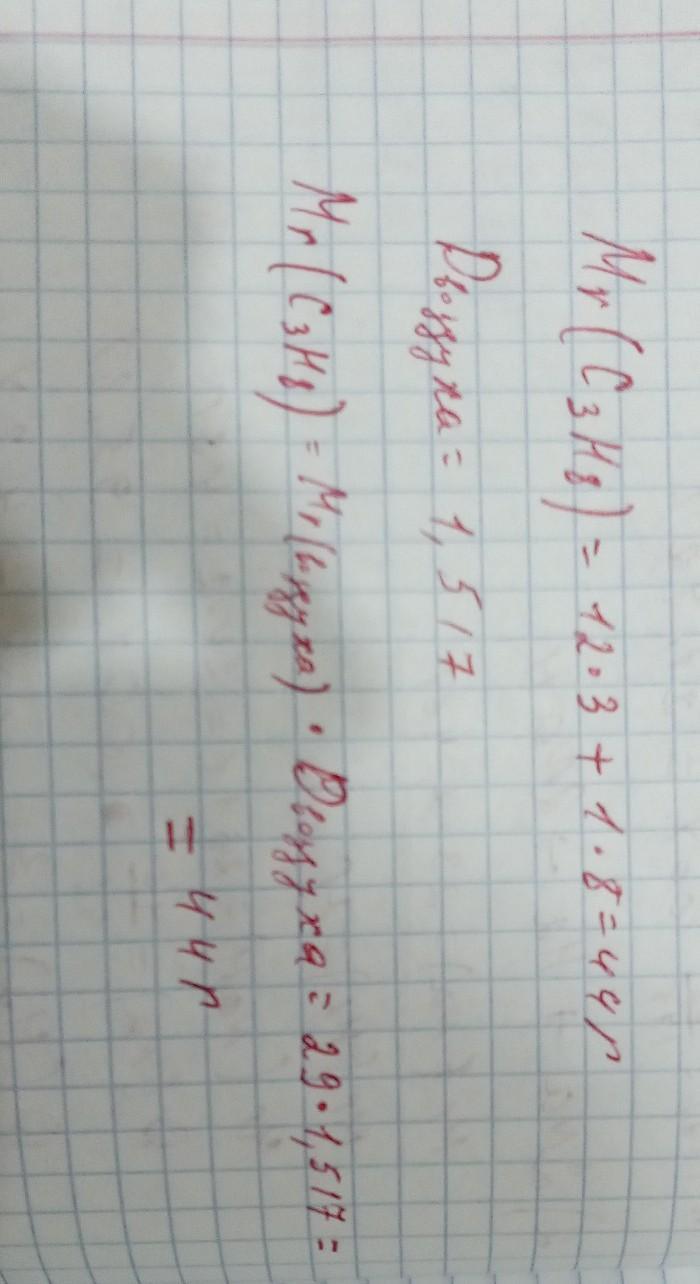 Mr(C3H8) = 12·3 + 1·8 = 44 г
Dвоздуха = 1,517
Mr(C3H8) = Mr(воздуха) · Dвоздуха = 29·1,517 =
= 44 г